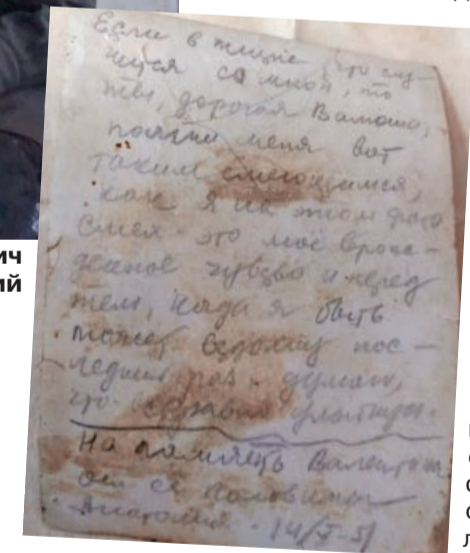 Если в жизни что слу-
чится со мной, то
ты, дорогая
помни меня вот
таким смеющимся,
как я на этом фото
Смех - это моё врож-
денное чувство и перед
тем, когда я быть
может вздохну пос-
ледний раз - думаю,
что всё равно улыбнусь.
На память
от её половины
Анатолия. 14/
ич
ий